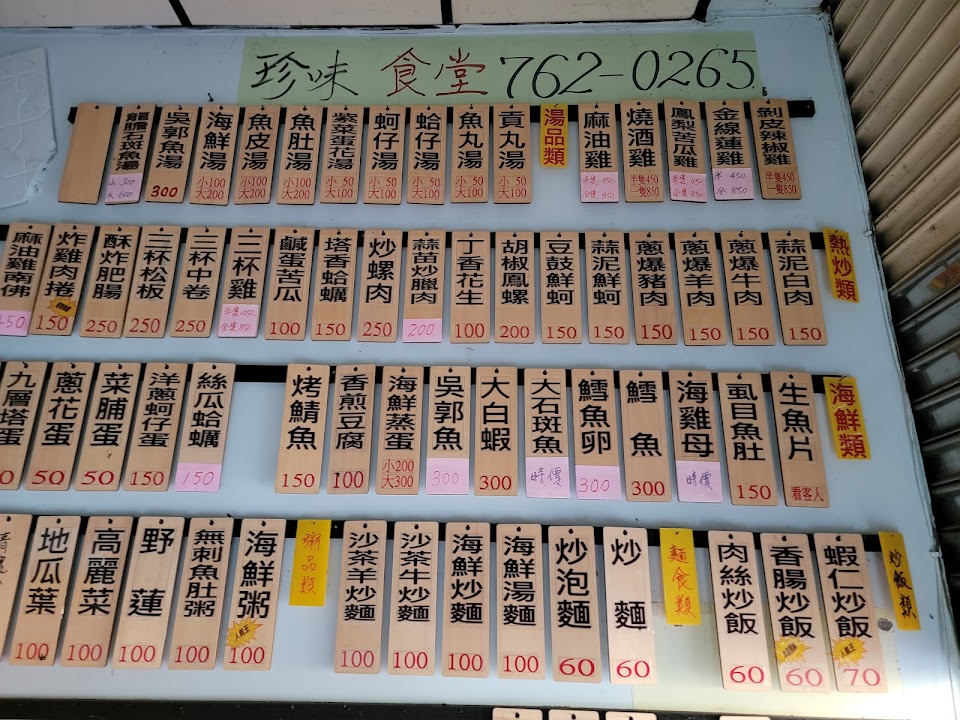 珍味 食堂 762-0265
剝皮辣椒雞
半隻450
一隻850
金線蓮雞
半 450
全 850
鳳梨苦瓜雞
半隻 450
全隻 850
燒酒雞
半隻450
一隻850
麻油雞
半隻 450
全隻 850
湯品類
貢丸湯
小 50
大100
魚丸湯
小 50
大100
蛤仔湯
小 50
大100
蚵仔湯
小 50
大100
紫菜蛋花湯
小 50
大100
魚肚湯
小100
大200
魚皮湯
小100
大200
海鮮湯
小100
大200
吳郭魚湯
300
龍膽石斑魚湯
小 300
大 600
熱炒類
蒜泥白肉
150
蔥爆牛肉
150
蔥爆羊肉
150
蔥爆豬肉
150
蒜泥鮮蚵
150
豆鼓鮮蚵
150
胡椒鳳螺
200
丁香花生
100
蒜苗炒臘肉
200
炒螺肉
250
塔香蛤蠣
150
鹹蛋苦瓜
100
三杯雞
半隻 450
全隻 850
三杯中卷
250
三杯松板
250
酥炸肥腸
250
炸雞肉捲
150
麻油雞南佛
450
海鮮類
生魚片
看客人
虱目魚肚
150
海雞母
時價
鱈魚
300
鱈魚卵
300
大石斑魚
時價
大白蝦
300
吳郭魚
300
海鮮蒸蛋
小200
大300
香煎豆腐
100
烤鯖魚
150
絲瓜蛤蠣
150
洋蔥蚵仔蛋
150
菜脯蛋
50
蔥花蛋
50
九層塔蛋
炒飯類
蝦仁炒飯
人氣王
70
香腸炒飯
60
肉絲炒飯
60
麵食類
炒麵
60
炒泡麵
60
海鮮湯麵
100
海鮮炒麵
100
沙茶牛炒麵
100
沙茶羊炒麵
100
粥品類
海鮮粥
人氣王
100
無刺魚肚粥
100
野蓮
100
高麗菜
100
地瓜葉
100